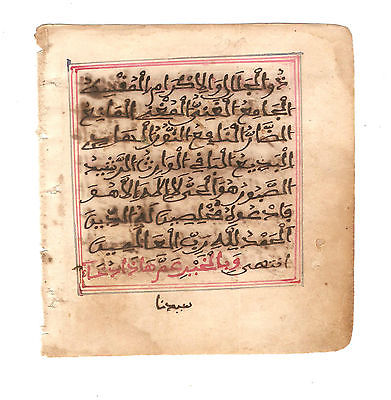 ذو الجلال والاكرام المقسط
الجامع الغني المغني المانع
الضار النافع النور الهادي
البديع الباقي الوارث الرشيد
الصبور هو الحي لا اله الا هو
فادعوه مخلصين له الدين
الحمد لله رب العالمين
انتهى وبالخير
سيدنا